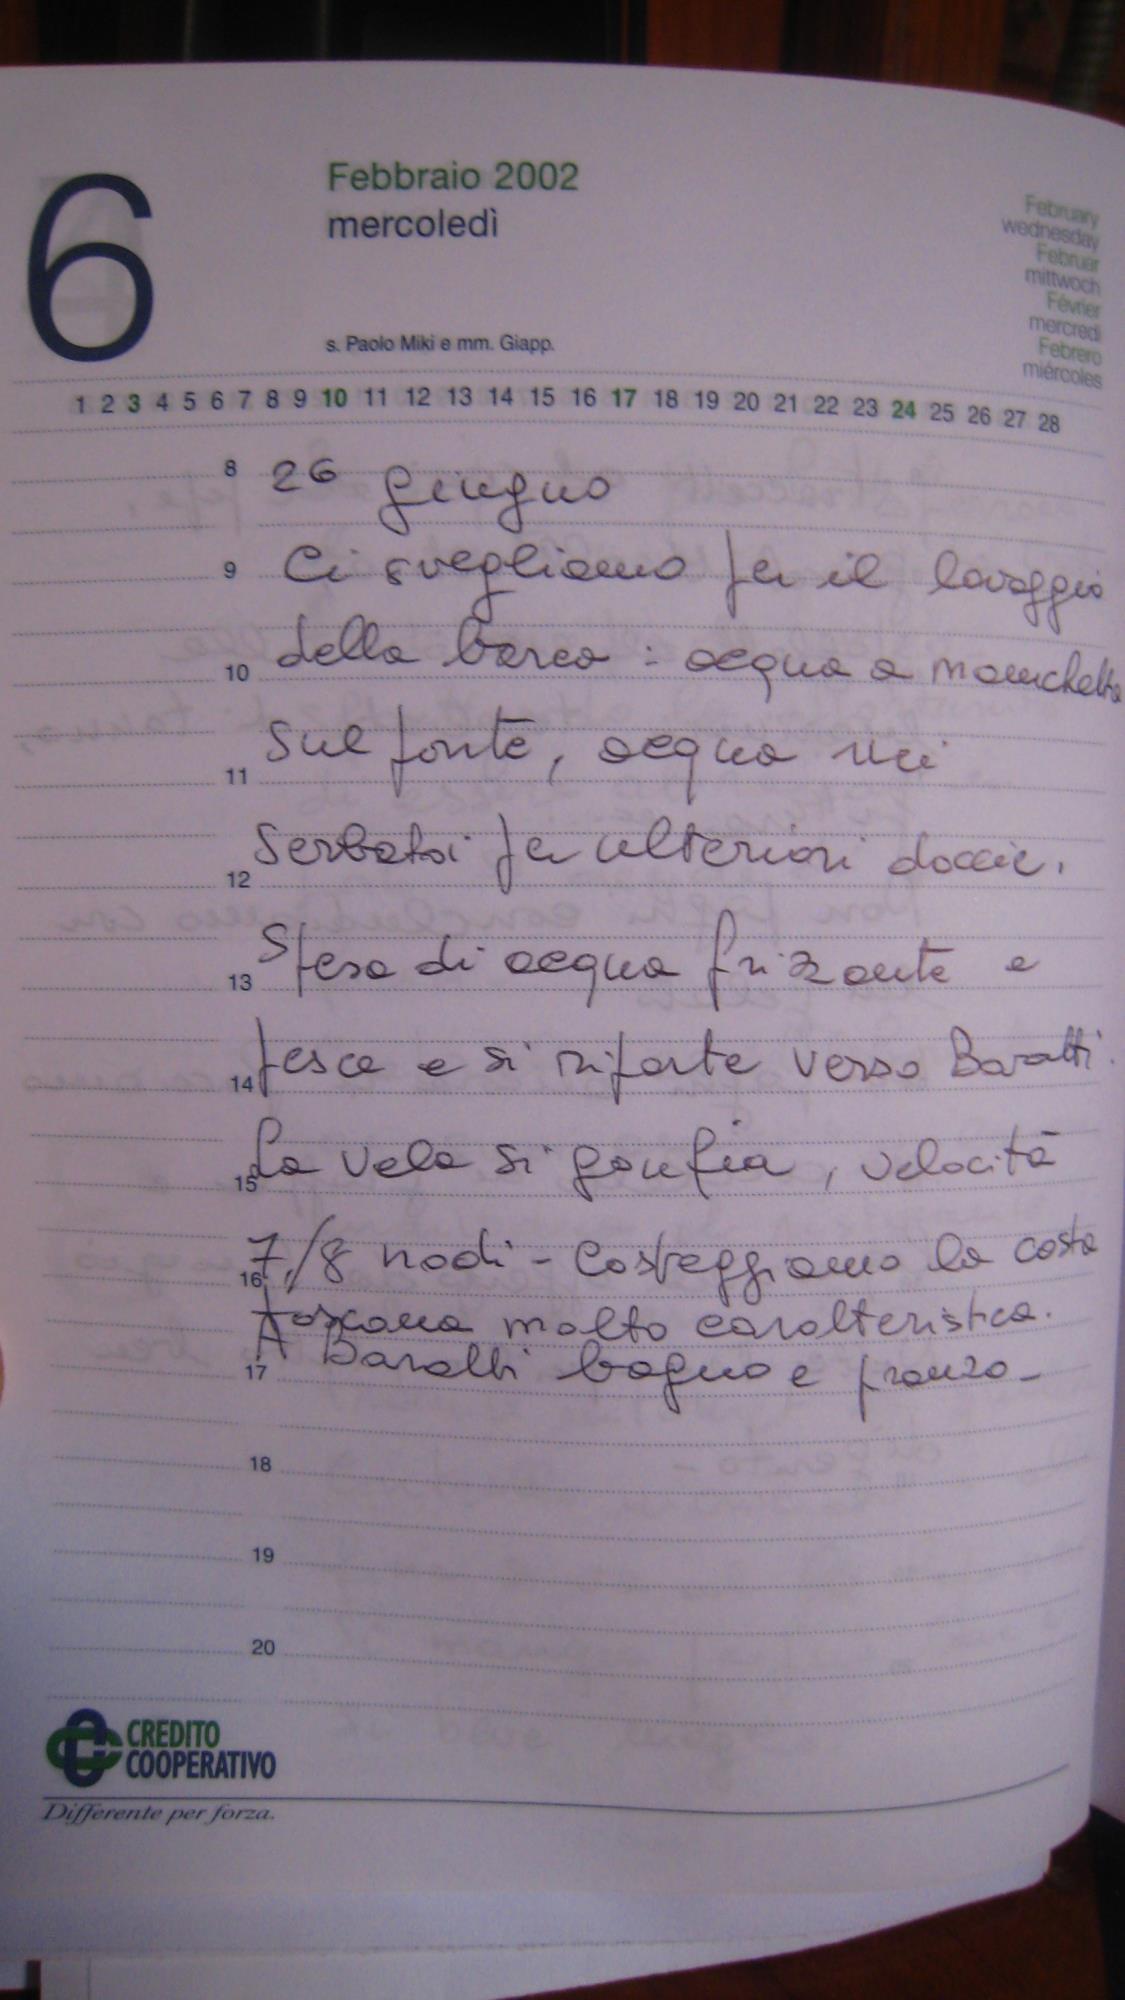 6
Febbraio 2002
mercoledì
s. Paolo Miki e mm. Giapp.
February
wednesday
Februar
mittwoch
Février
mercredi
Febrero
miércoles
1 2 3 4 5 6 7 8 9 10 11 12 13 14 15 16 17 18 19 20 21 22 23 24 25 26 27 28
8 26 giugno
9 Ci svegliamo per il lavaggio
10 della barca : acqua a manichetta
11 sul ponte, acqua nei
12 serbatoi per ulteriori doccie.
13 Spesa di acqua frizzante e
14 pesce e si riparte verso Baratti.
15 La vela si gonfia, velocità
16 7/8 nodi - Costeggiamo la costa
toscana molto caratteristica.
17 A Baratti bagno e pranzo -
18
19
20
CREDITO
COOPERATIVO
Differente per forza.